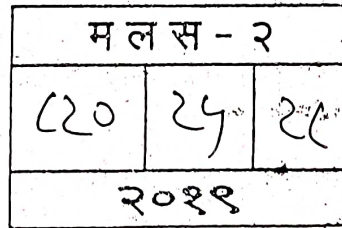 म ल स - २
८२० २५ २८
२०१९